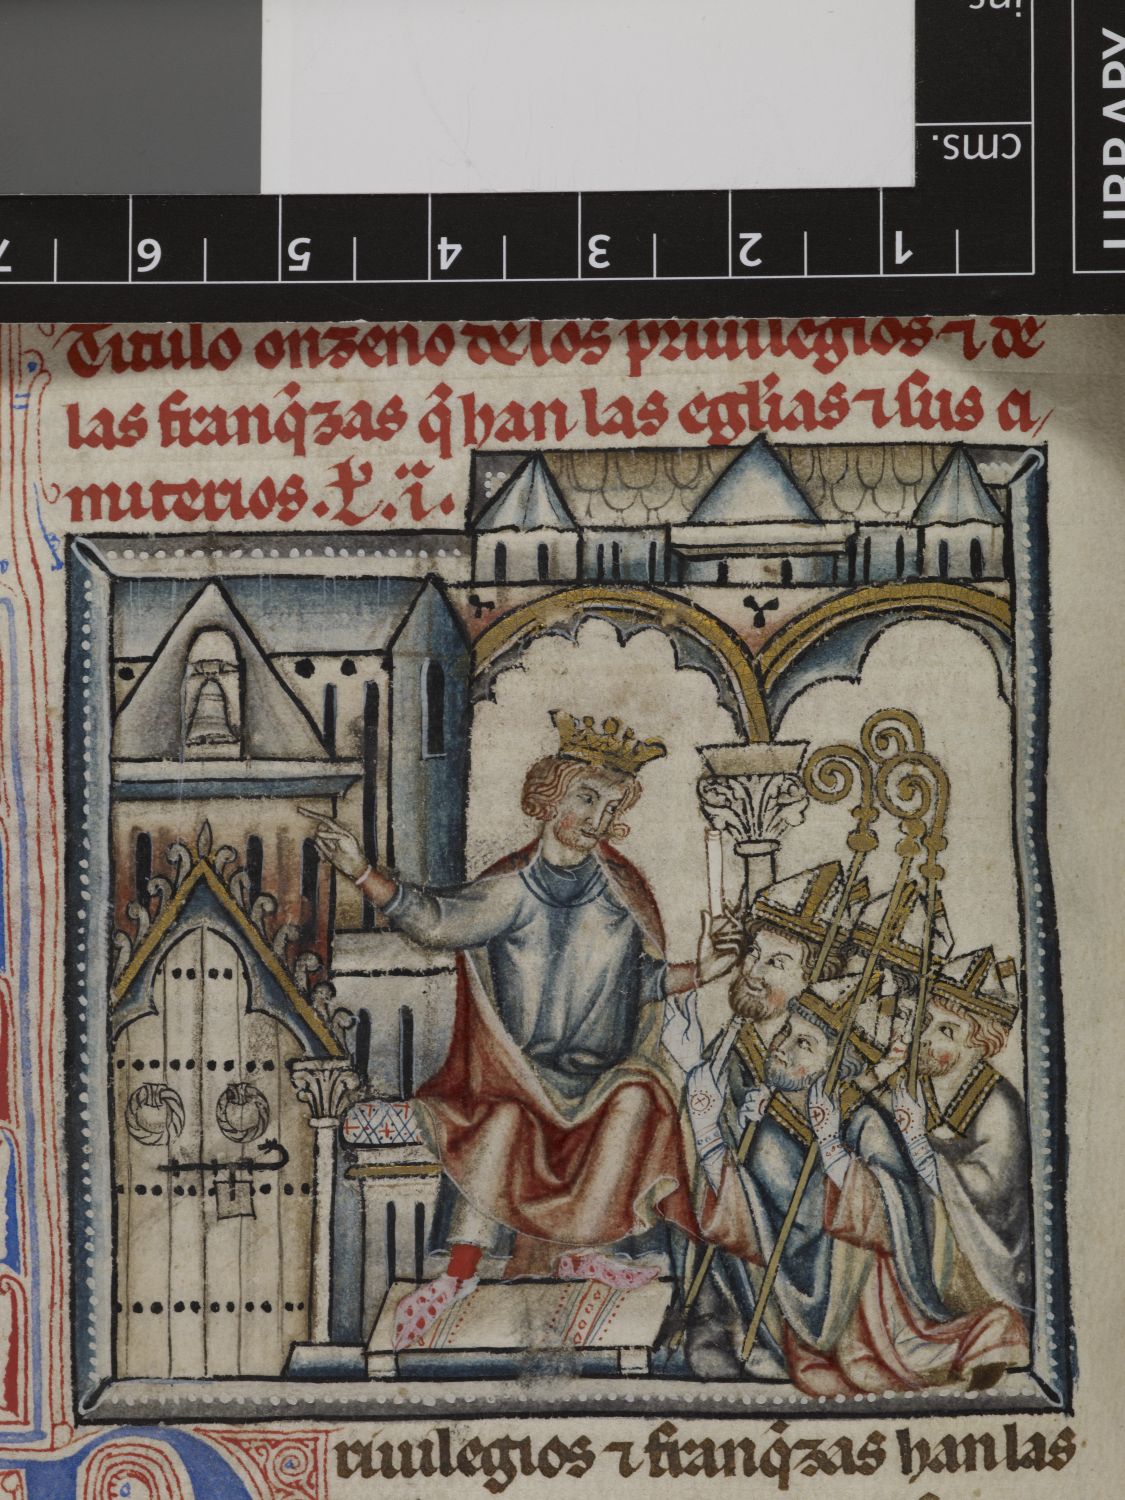 ins
cms.
LIBRARY
7 6 5 4 3 2 1
Titulo onzeno de los priuilegios ⁊ de
las franq̃zas q̃ han las eglĩas ⁊ sus ci/
miterios.
riuilegios ⁊ franq̃zas han las